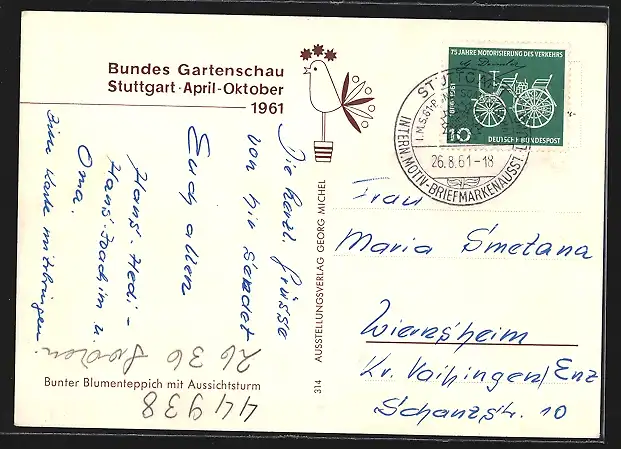 Bundes Gartenschau
Stuttgart · April-Oktober
1961
75 JAHRE MOTORISIERUNG DES VERKEHRS
G. Daimler
10
DEUTSCHE BUNDESPOST
STUTTGART
I.M.S.61
26.8.61-18
INTERN. MOTIV-BRIEFMARKENAUSST.
Die herzl. Grüsse
von hier sendet
Euch allen
Hans - Hedi -
Hans-Joachim u.
Oma.
Bitte Karte mitbringen
Frau
Maria Smetana
Wiernsheim
Kr. Vaihingen/Enz
Schanzstr. 10
AUSSTELLUNGSVERLAG GEORG MICHEL
314
Bunter Blumenteppich mit Aussichtsturm
26 36
44938